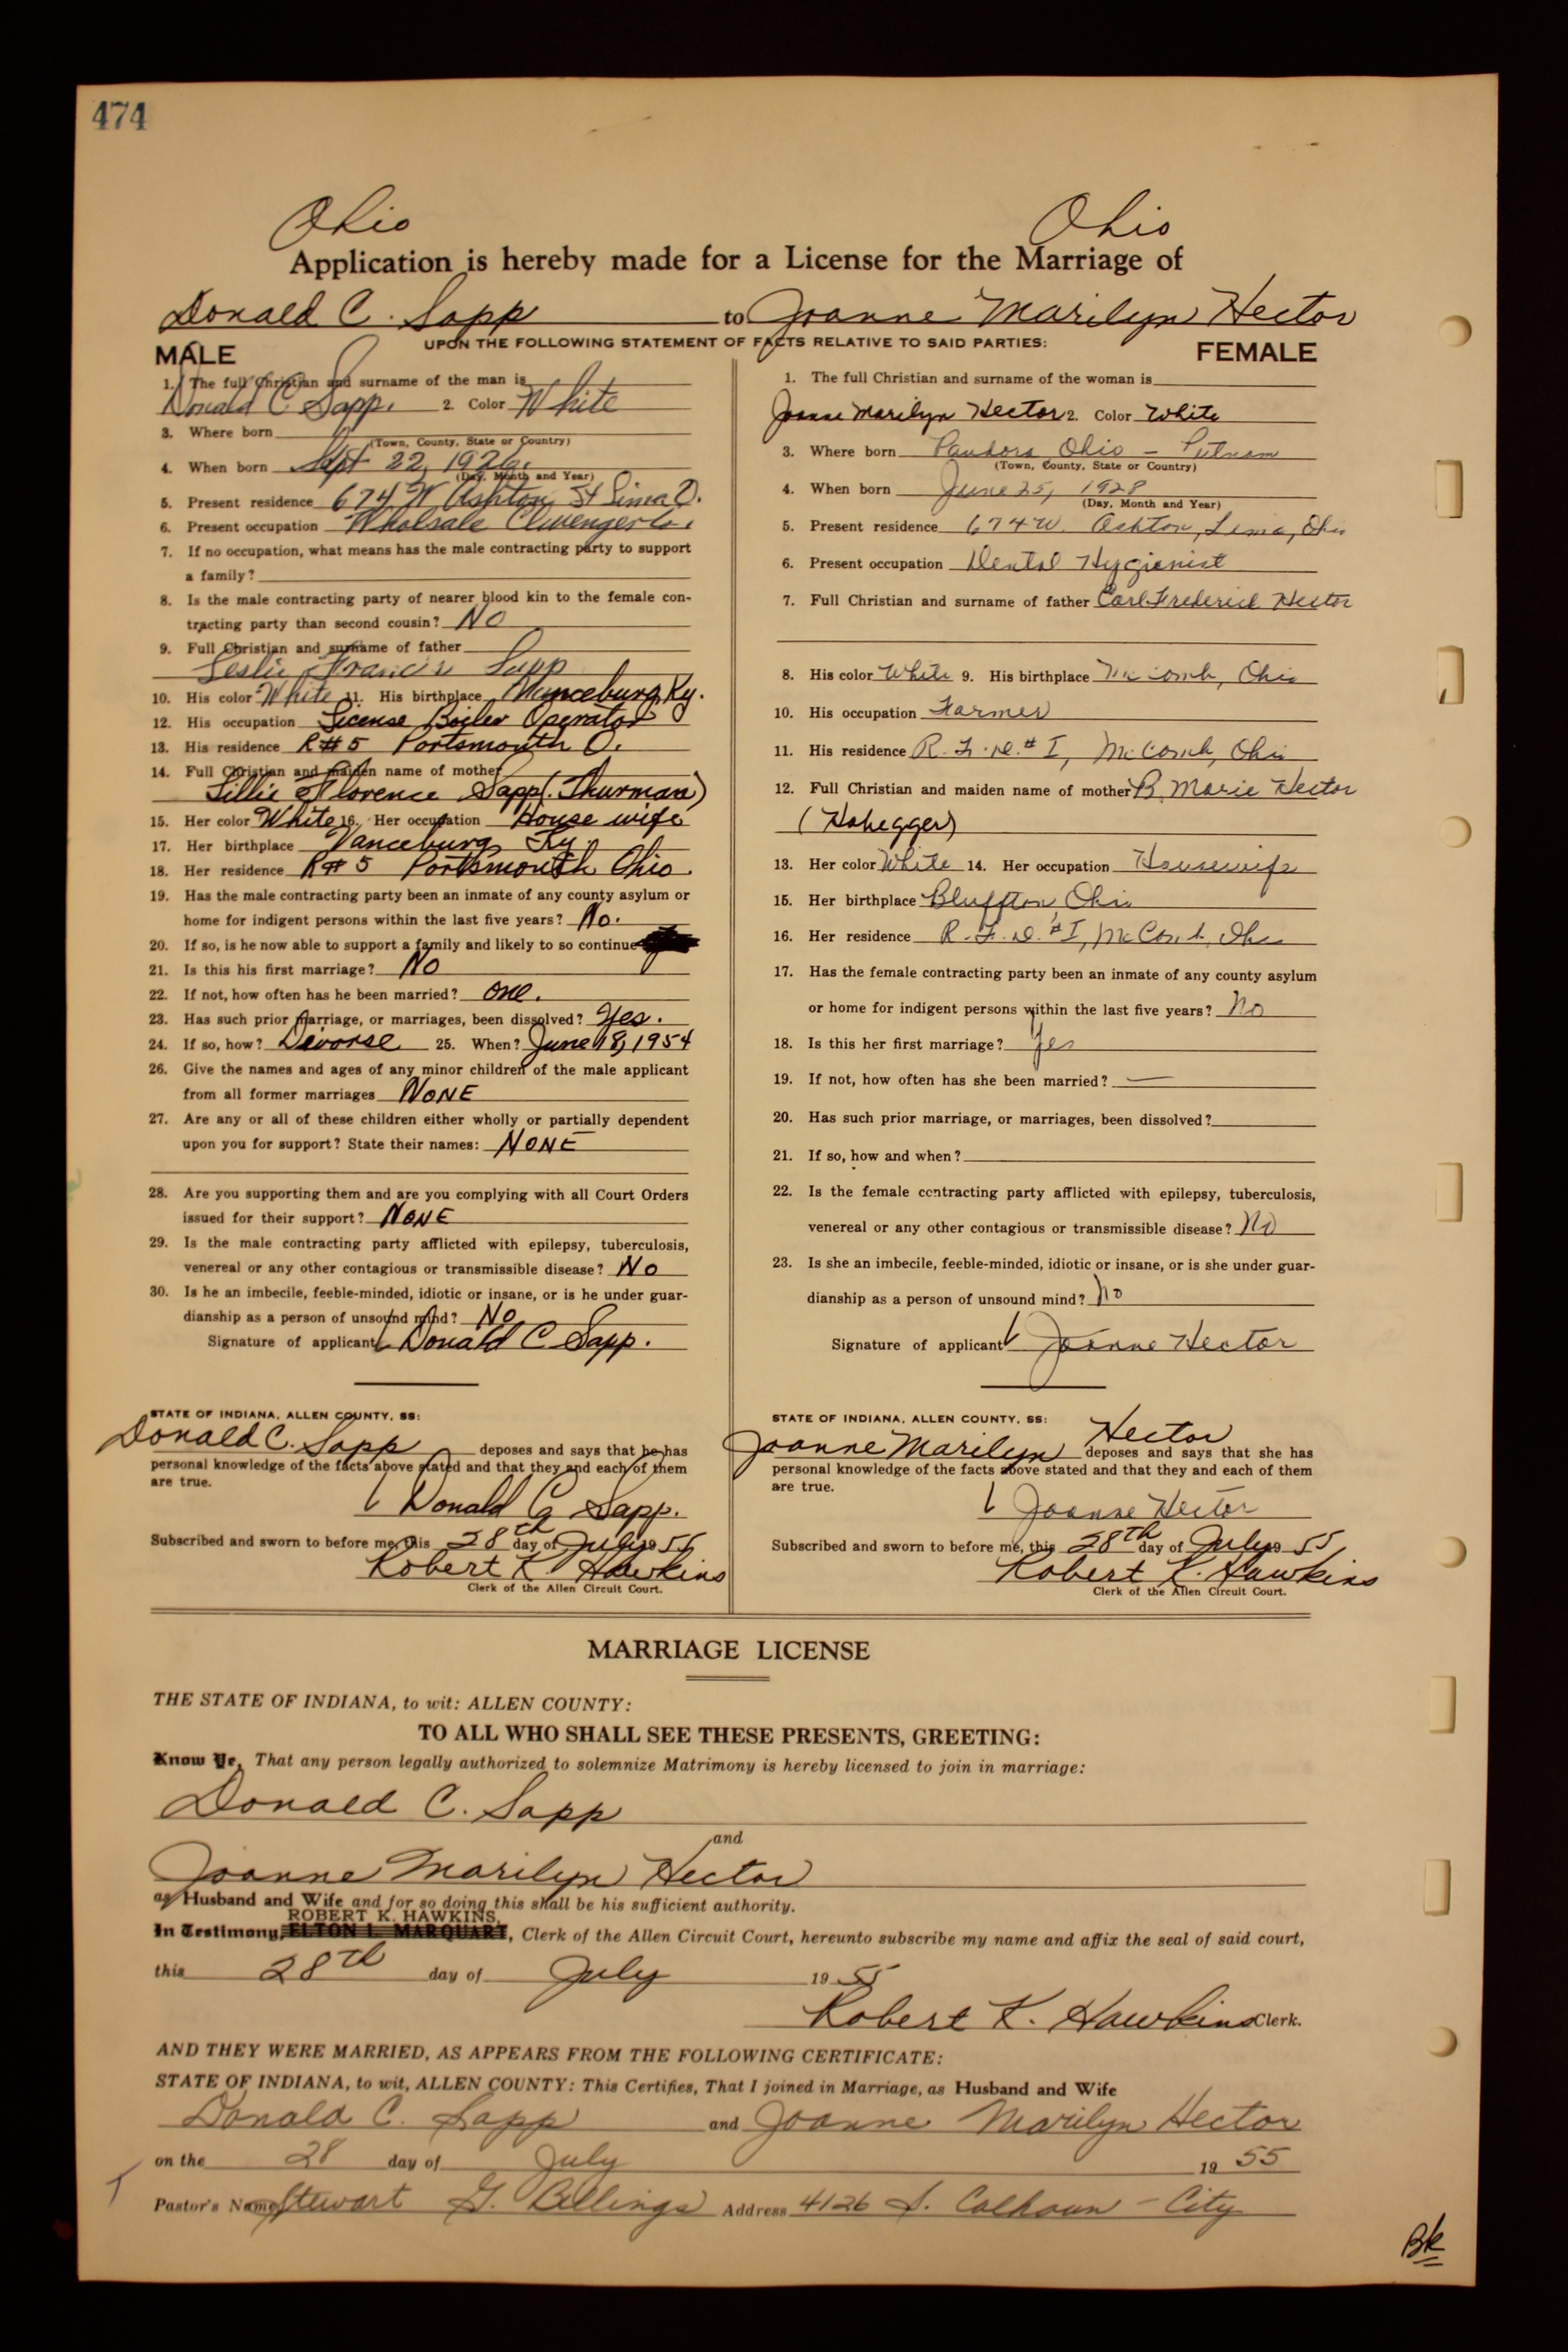 474
Ohio Ohio
Application is hereby made for a License for the Marriage of
Donald C. Sapp to Joanne Marilyn Hector
UPON THE FOLLOWING STATEMENT OF FACTS RELATIVE TO SAID PARTIES:
MALE
1. The full Christian and surname of the man is
Donald C Sapp. 2. Color White
3. Where born
(Town, County, State or Country)
4. When born Sept 22, 1926.
(Day, Month and Year)
5. Present residence 674 W Ashton St Lima O.
6. Present occupation Wholsale Clivenger Co.
7. If no occupation, what means has the male contracting party to support
a family?
8. Is the male contracting party of nearer blood kin to the female con-
tracting party than second cousin? NO
9. Full Christian and surname of father
Leslie Francis Sapp
10. His color White 11. His birthplace Munceburg, Ky.
12. His occupation License Boiler Operator
13. His residence R#5 Portsmouth O.
14. Full Christian and maiden name of mother
Lillie Florence Sapp (Thurman)
15. Her color White 16. Her occupation House wife
17. Her birthplace Vanceburg Ky
18. Her residence R#5 Portsmouth Ohio.
19. Has the male contracting party been an inmate of any county asylum or
home for indigent persons within the last five years? No.
20. If so, is he now able to support a family and likely to so continue
21. Is this his first marriage? No
22. If not, how often has he been married? one.
23. Has such prior marriage, or marriages, been dissolved? Yes.
24. If so, how? Divorse 25. When? June 18, 1954
26. Give the names and ages of any minor children of the male applicant
from all former marriages NONE
27. Are any or all of these children either wholly or partially dependent
upon you for support? State their names: NONE
28. Are you supporting them and are you complying with all Court Orders
issued for their support? NONE
29. Is the male contracting party afflicted with epilepsy, tuberculosis,
venereal or any other contagious or transmissible disease? No
30. Is he an imbecile, feeble-minded, idiotic or insane, or is he under guar-
dianship as a person of unsound mind? No
Signature of applicant Donald C Sapp.
STATE OF INDIANA, ALLEN COUNTY, SS:
Donald C. Sapp deposes and says that he has
personal knowledge of the facts above stated and that they and each of them
are true.
Donald C Sapp.
Subscribed and sworn to before me, this 28th day of July 19 55
Robert K. Hawkins
Clerk of the Allen Circuit Court.
FEMALE
1. The full Christian and surname of the woman is
Joanne Marilyn Hector 2. Color White
3. Where born Pandora, Ohio - Putnam
(Town, County, State or Country)
4. When born June 25, 1928
(Day, Month and Year)
5. Present residence 674 W. Ashton, Lima, Ohio
6. Present occupation Dental Hygienist
7. Full Christian and surname of father Carl Frederick Hector
8. His color White 9. His birthplace McComb, Ohio
10. His occupation Farmer
11. His residence R.F.D. #1, McComb, Ohio
12. Full Christian and maiden name of mother B. Marie Hector
(Hohegger)
13. Her color White 14. Her occupation Housewife
15. Her birthplace Bluffton, Ohio
16. Her residence R.F.D. #1, McComb, Ohio
17. Has the female contracting party been an inmate of any county asylum
or home for indigent persons within the last five years? No
18. Is this her first marriage? Yes
19. If not, how often has she been married? —
20. Has such prior marriage, or marriages, been dissolved?
21. If so, how and when?
22. Is the female contracting party afflicted with epilepsy, tuberculosis,
venereal or any other contagious or transmissible disease? No
23. Is she an imbecile, feeble-minded, idiotic or insane, or is she under guar-
dianship as a person of unsound mind? No
Signature of applicant Joanne Hector
STATE OF INDIANA, ALLEN COUNTY, SS:
Joanne Marilyn Hector deposes and says that she has
personal knowledge of the facts above stated and that they and each of them
are true.
Joanne Hector
Subscribed and sworn to before me, this 28th day of July 19 55
Robert K. Hawkins
Clerk of the Allen Circuit Court.
MARRIAGE LICENSE
THE STATE OF INDIANA, to wit: ALLEN COUNTY:
TO ALL WHO SHALL SEE THESE PRESENTS, GREETING:
Know Ye, That any person legally authorized to solemnize Matrimony is hereby licensed to join in marriage:
Donald C. Sapp
and
Joanne Marilyn Hector
as Husband and Wife and for so doing this shall be his sufficient authority.
ROBERT K. HAWKINS,
In Testimony, ELTON L. MARQUART, Clerk of the Allen Circuit Court, hereunto subscribe my name and affix the seal of said court,
this 28th day of July 19 55
Robert K. Hawkins Clerk.
AND THEY WERE MARRIED, AS APPEARS FROM THE FOLLOWING CERTIFICATE:
STATE OF INDIANA, to wit, ALLEN COUNTY: This Certifies, That I joined in Marriage, as Husband and Wife
Donald C. Sapp and Joanne Marilyn Hector
on the 28 day of July 19 55
Pastor's Name Stewart G. Billings Address 4126 S. Calhoun - City
Bk